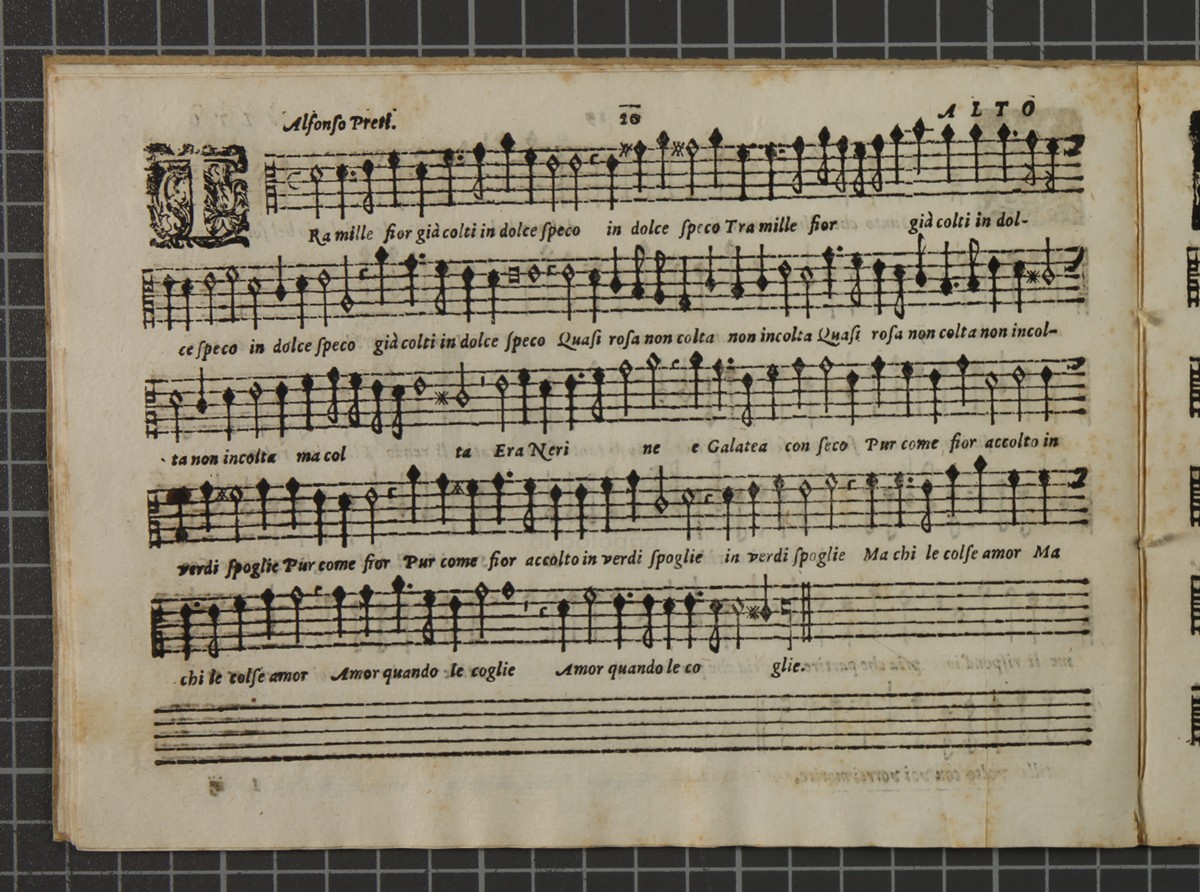 Alfonso Preti.
20
ALTO
TRa mille fior già colti in dolce ſpeco in dolce ſpeco Tra mille fior già colti in dol-
ce ſpeco in dolce ſpeco già colti in dolce ſpeco Quaſi roſa non colta non incolta Quaſi roſa non colta non incol-
ta non incolta ma col ta Era Neri ne e Galatea con ſeco Pur come fior accolto in
verdi ſpoglie Pur come fior Pur come fior accolto in verdi ſpoglie in verdi ſpoglie Ma chi le colſe amor Ma
chi le colſe amor Amor quando le coglie Amor quando le co glie.